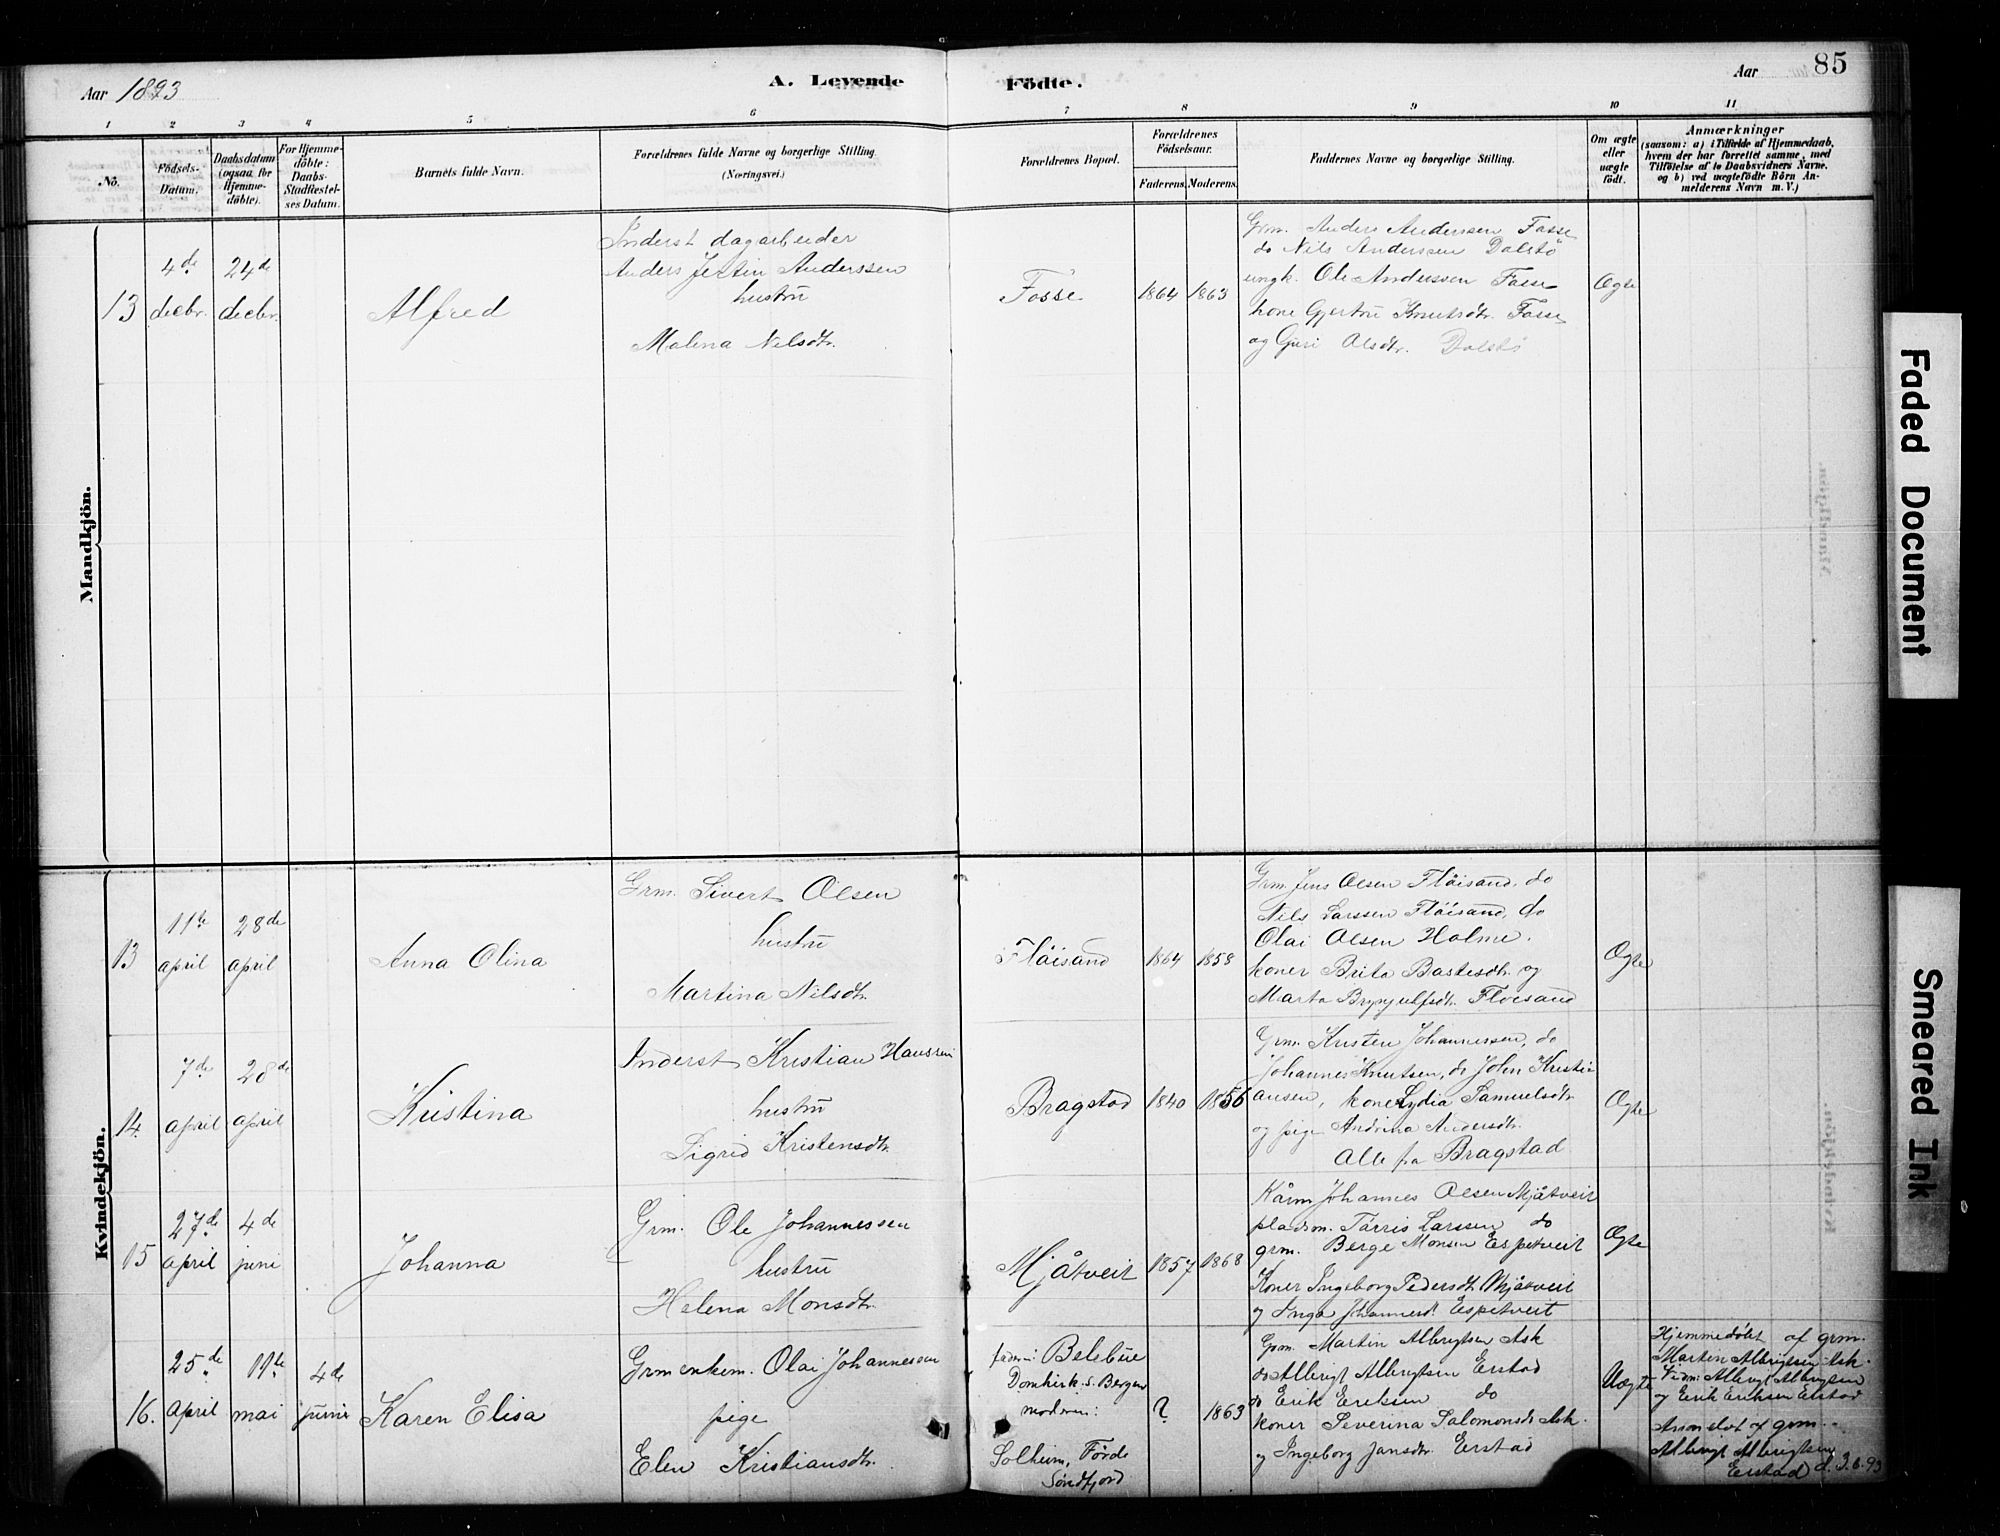 Aar 1893
A. Levende
Födte.
Aar
85
1 2 3 4 5 6 7 8 9 10 11
No.
Födsels-
Datum.
Daabsdatum
(ogsaa for
Hjemme-
döbte).
For Hjemme-
döbte:
Daabs-
Stadfæstel-
ses Datum.
Barnets fulde Navn.
Forældrenes fulde Navne og borgerlige Stilling.
(Næringsvei.)
Forældrenes Bopæl.
Forældrenes
Födselsaar.
Faderens. Moderens.
Faddernes Navne og borgerlige Stilling.
Om ægte
eller
uægte
födt.
Anmærkninger
(saasom: a) i Tilfælde af Hjemmedaab,
hvem der har forrettet samme, med
Tilföielse af to Daabsvidners Navne.
og b) ved uegtefödte Börn An-
melderens Navn m. V.)
Mandkjön.
13
4de
decbr.
24de
decbr.
Alfred
Inderst dagarbeider
Anders Anderssen
hustru
Malena Nilsdtr.
Fosse
1864
1863
Grm. Anders Anderssen Fosse
do Nils Anderssen Dalstö
ungk. Ole Anderssen Fosse
kone Gjertru Knutsdtr. Fosse
og Guri Olsdtr. Dalstö
Ægte
Kvindekjön.
13
11te
april
28de
april
Anna Olina
Grm. Sivert Olsen
hustru
Martina Nilsdtr.
Flöisand
1864
1858
Grm. Jens Olsen Flöisand, do
Nils Larssen Flöisand, do
Olai Olsen Holme.
koner Brita Bastesdtr. og
Marta Brynjulfsdtr. Floisand
Ægte
14.
7de
april
28de
april
Kristina
Inderst Kristian Hanssen
hustru
Sigrid Kristensdtr.
Bragstad
1840
1856
Grm. Kristen Johannessen, do
Johannes Knutsen, do John Kristi-
ansen, kone Lydia Samuelsdtr
og pige Andrina Andersdtr.
Alle fra Bragstad
Ægte
15
27de
april
4de
juni
Johanna
Grm. Ole Johannessen
hustru
Helena Monsdtr.
Mjåtveit
1857
1868
Kårm Johannes Olsen Mjåtveit
pladsm. Tørris Larssen do
grm. Berge Monsen Espetveit
Koner Ingeborg Pedersdtr Mjåtveit
og Inga Johannesd. Espetveit
Ægte
16.
25de
april
19te
mai
4de
juni
Karen Elisa
Grm enkem. Olai Johannessen
pige
Elen Kristiansdtr.
faderen: Belebue
Domkirk. s. Bergen
moderen:
Solheim, Förde
Söndfjord
?
1863
Grm. Martin Albrigtsen Ask
do Albrigt Albrigtsen Erstad
do Erik Eriksen do
koner Severina Salomonsdtr Ask.
og Ingeborg Jansdtr. Erstad
Uægte
Hjemmedöbt af grm.
Martin Albrigtsen Ask.
Vidn: Albrigt Albrigtsen
og Erik Eriksen Erstad
Anmeldt af grm.
Albrigt Albrigtsen
Erstad d. 3.6.93
Faded Document
Smeared Ink